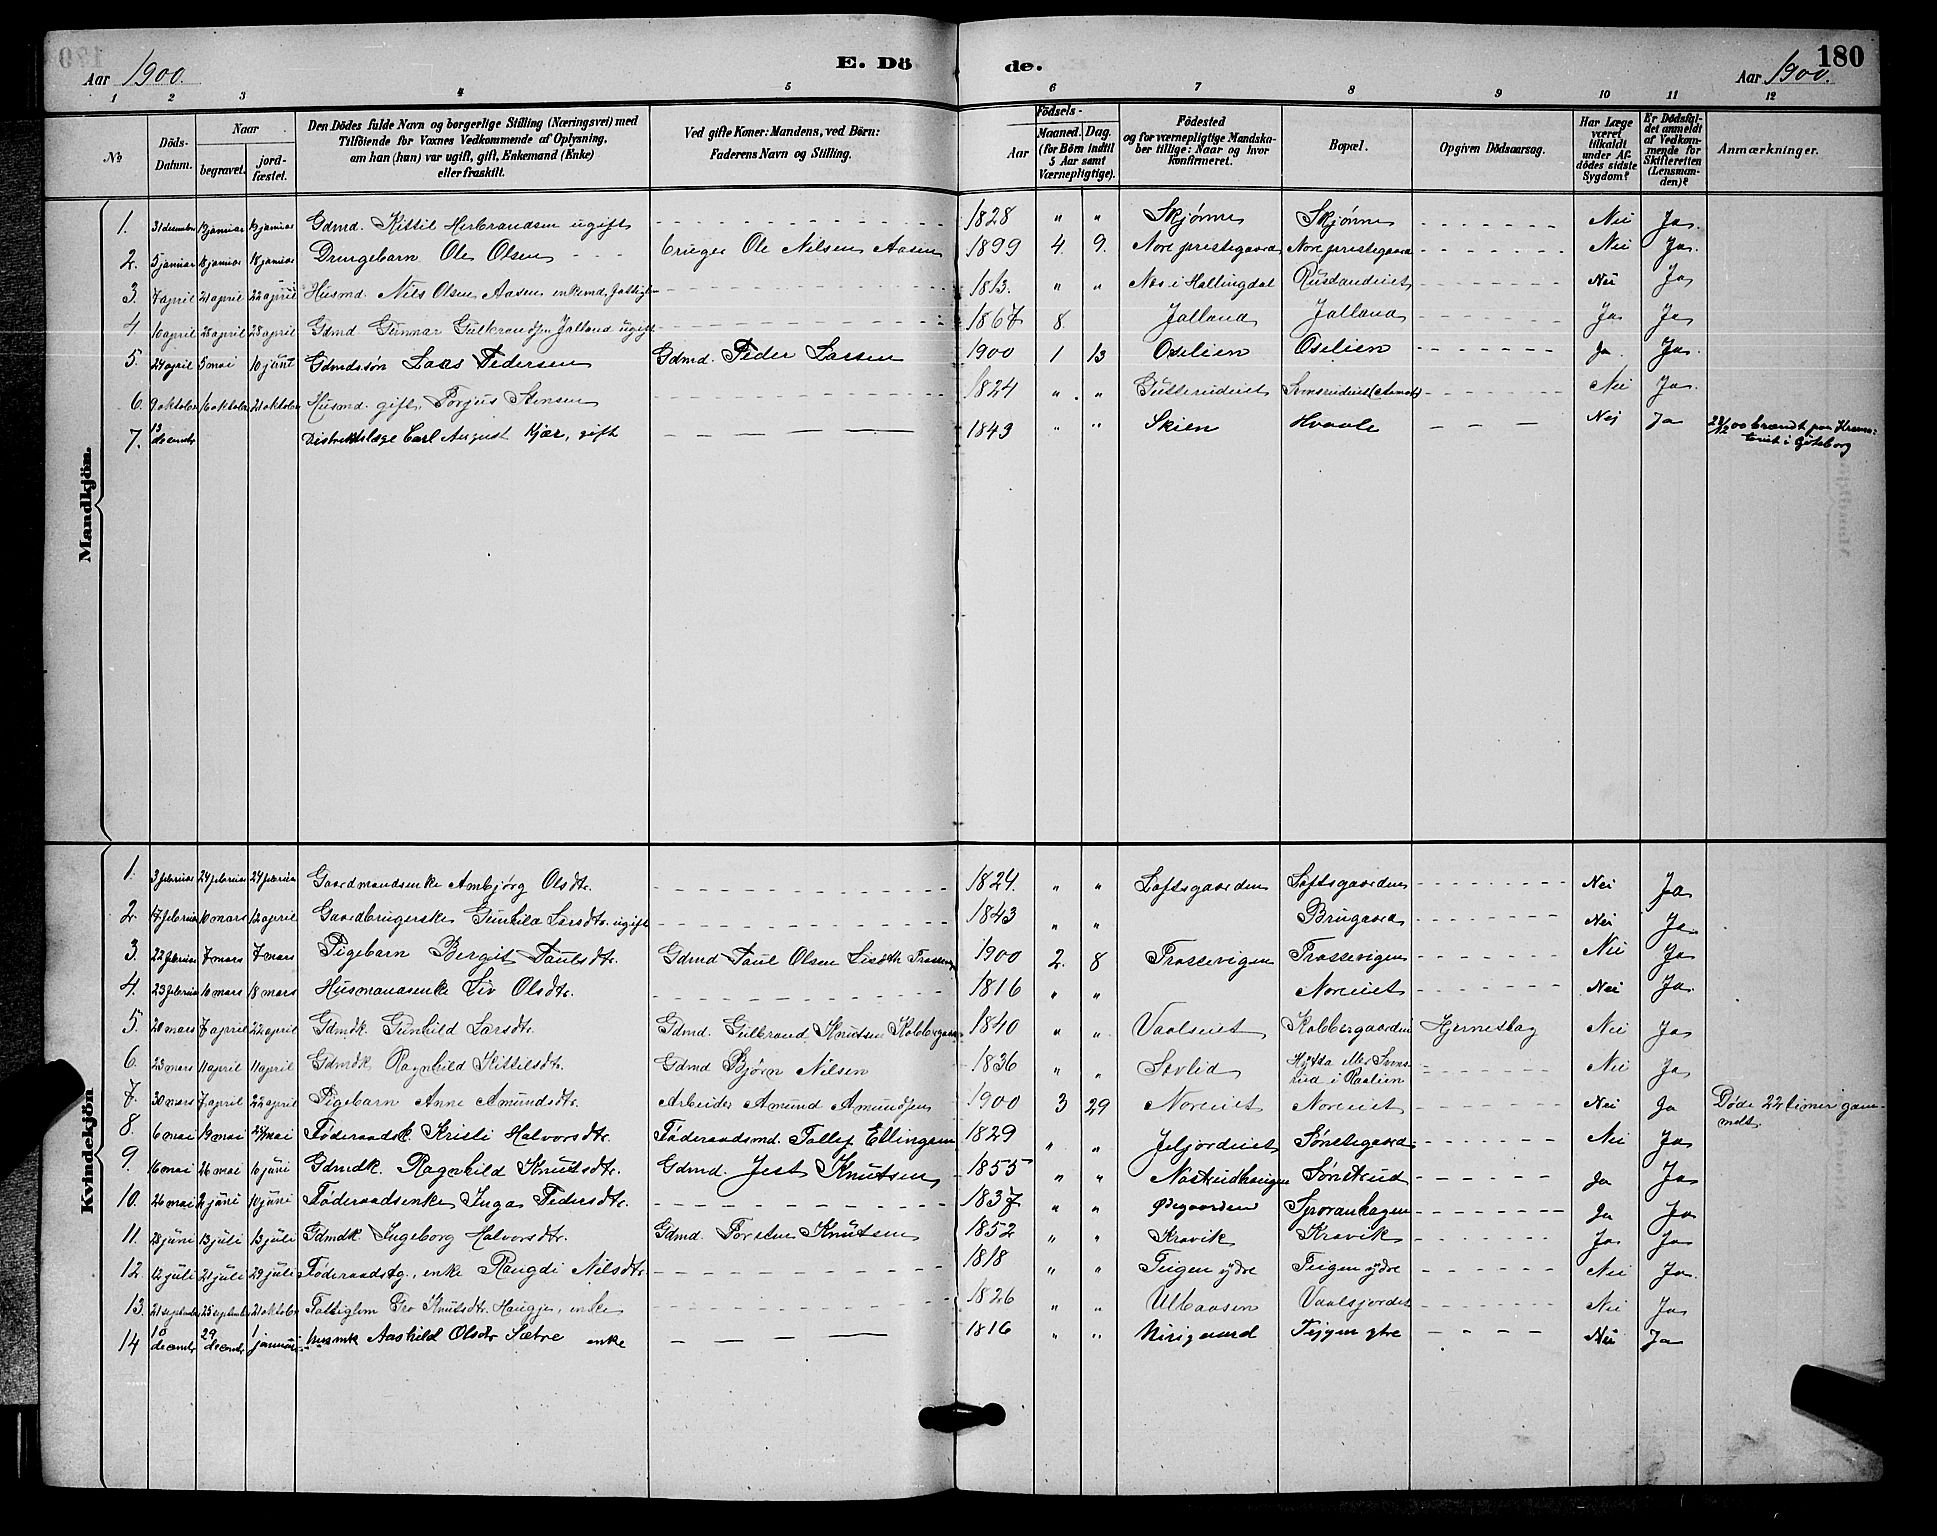 Aar 1900. E. Dö de. Aar 1900. 180
1 2 3 4 5 6 7 8 9 10 11 12
№ Döds-Datum. Naar begravet. jord-fæstet. Den Dödes fulde Navn og borgerlige Stilling (Næringsvei) med Tilföiende for Voxnes Vedkommende af Oplysning, om han (hun) var ugift, gift, Enkemand (Enke) eller fraskilt. Ved gifte Koner: Mandens, ved Börn: Faderens Navn og Stilling. Födsels- Aar Maaned. Dag. (for Börn indtil 5 Aar samt Værnepligtige). Födested og for værnepligtige Mandska-ber tillige: Naar og hvor konfirmeret. Bopæl. Opgiven Dödsaarsag. Har Læge været tilkaldt under Af-dödes sidste Sygdom? Er Dödsfal-det anmeldt af Vedkom-mende for Skifteretten (Lensman-den)? Anmærkninger.
Mandkjön.
1. 31 december 13 januar 13 januar Gdmd. Kittil Herbrandsen ugift 1828 " " Skjönne Skjönne Nei Ja.
2. 5 januar 18 januar 18 januar Drengebarn Ole Olsen Bruger Ole Nilsen Aasen 1899 4 9. Nore prestegaard Nore prestegaard Nei Ja.
3. 7 april 21 april 22 april Husmd. Nils Olsen Aasen enkemd, fattigl. 1813. " " Næs i Hallingdal Rustandeiet Nei Ja
4 16 april 28 april 28 april Gdmd Gunnar Gulbrandsen Jalland ugift 1867 8. Jalland Jalland Ja Ja
5. 24 april 5 mai 10 juni Gdmdssön Lars Pedersen Gdmd. Peder Larsen 1900 1 13 Oselien Oselien Ja. Ja.
6. 9 oktober 16 oktober 21 oktober Husmd. gift, Torjus Stensen 1824 " " Gutterudeiet Nei Ja.
7. 13 decembr Distriktslæge Carl August Kjær, gift 1843 " " Skien Hvaale Nej Ja 22/12 00 brændt paa Krema-toriet i Göteborg
Kvindekjön
1. 3 februar 24 februar 24 februar Gaardmandsenke Ambjörg Olsdtr. 1824. " " Loftsgaarden Loftsgaarden Nei Ja
2. 17 februar 10 mars 12 april Gaardbrugerske Gunhild Larsdtr. ugift 1843 " " Brugaard Nei Ja
3. 22 februar 7 mars 7 mars Pigebarn Bergit Paulsdtr. Gdmd Paul Olsen 1900 2. 8 Frossevigen Frossevigen Nei Ja
4. 23 februar 10 mars 18 mars Husmandsenke Liv Olsdtr. 1816 " " Noreeiet Nei Ja.
5. 20 mars 7 april 22 april Gdmdk. Gunhild Larsdtr. Gdmd. Gulbrand Knutsen Kobbergaarden 1840 " " Vaalseiet Kobbergaarden Hjerneslag Nei Ja
6. 23 mars 11 april 11 april Gdmdk Ragnhild Kittilsdtr. Gdmd Björn Nilsen 1836 " " Sevlid Nei Ja
7. 30 mars 7 april 22 april Pigebarn Anne Amundsdtr. Arbeider Amund Amundsen 1900 3 29 Noreeiet Noreeiet Nei Ja Døde 22 timer gam-melt.
8 6 mai 19 mai 24 mai Föderaadsk. Kristi Halvorsdtr. Föderaadsmd. Tollef Ellingsen 1829 " " Jeljordeiet Sönstegaard Nei Ja
9. 16 mai 26 mai 10 juni Gdmdk. Ragnhild Knutsdtr. Gdmd. Jest Knutsen 1855 " " Nöstrudhaugen Sönstrud Ja Ja
10. 26 mai 2 juni 10 juni Föderaadsenke Inga Pedersdtr. 1837 " " Ödegaarden Sporanhagen Ja Ja
11. 28 juni 13 juli 13 juli Gdmdk Ingeborg Halvorsdtr. Gdmd. Torsten Knutsen 1852 " " Kravik Kravik Ja Ja
12. 12 juli 21 juli 29 juli Föderaadstg., enke Rangdi Nilsdtr. 1818 " " Teigen ydre Teigen ydre Nei Ja.
13. 21 september 25 september 21 oktober Fattiglem Gro Knutsdtr. Haugje, enke 1826 " " Ulbaasen Vaalsjordet Nei Ja
14 10 decembr 29 decembr 1 januar Husmk Aashild Olsdtr Sætre enke 1816 " " Mirigaard Tejgen ytre Nei Ja